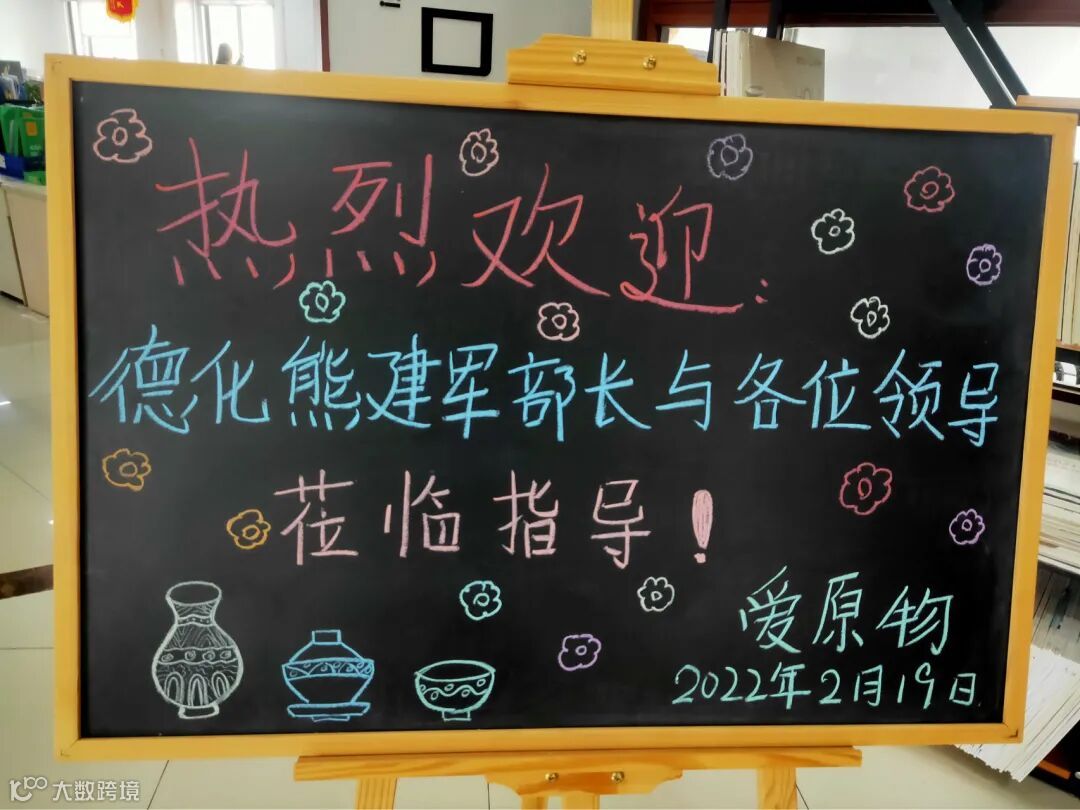 热烈欢迎:
德化熊建军部长与各位领导
莅临指导!
爱原物
2022年2月19日
大数跨境